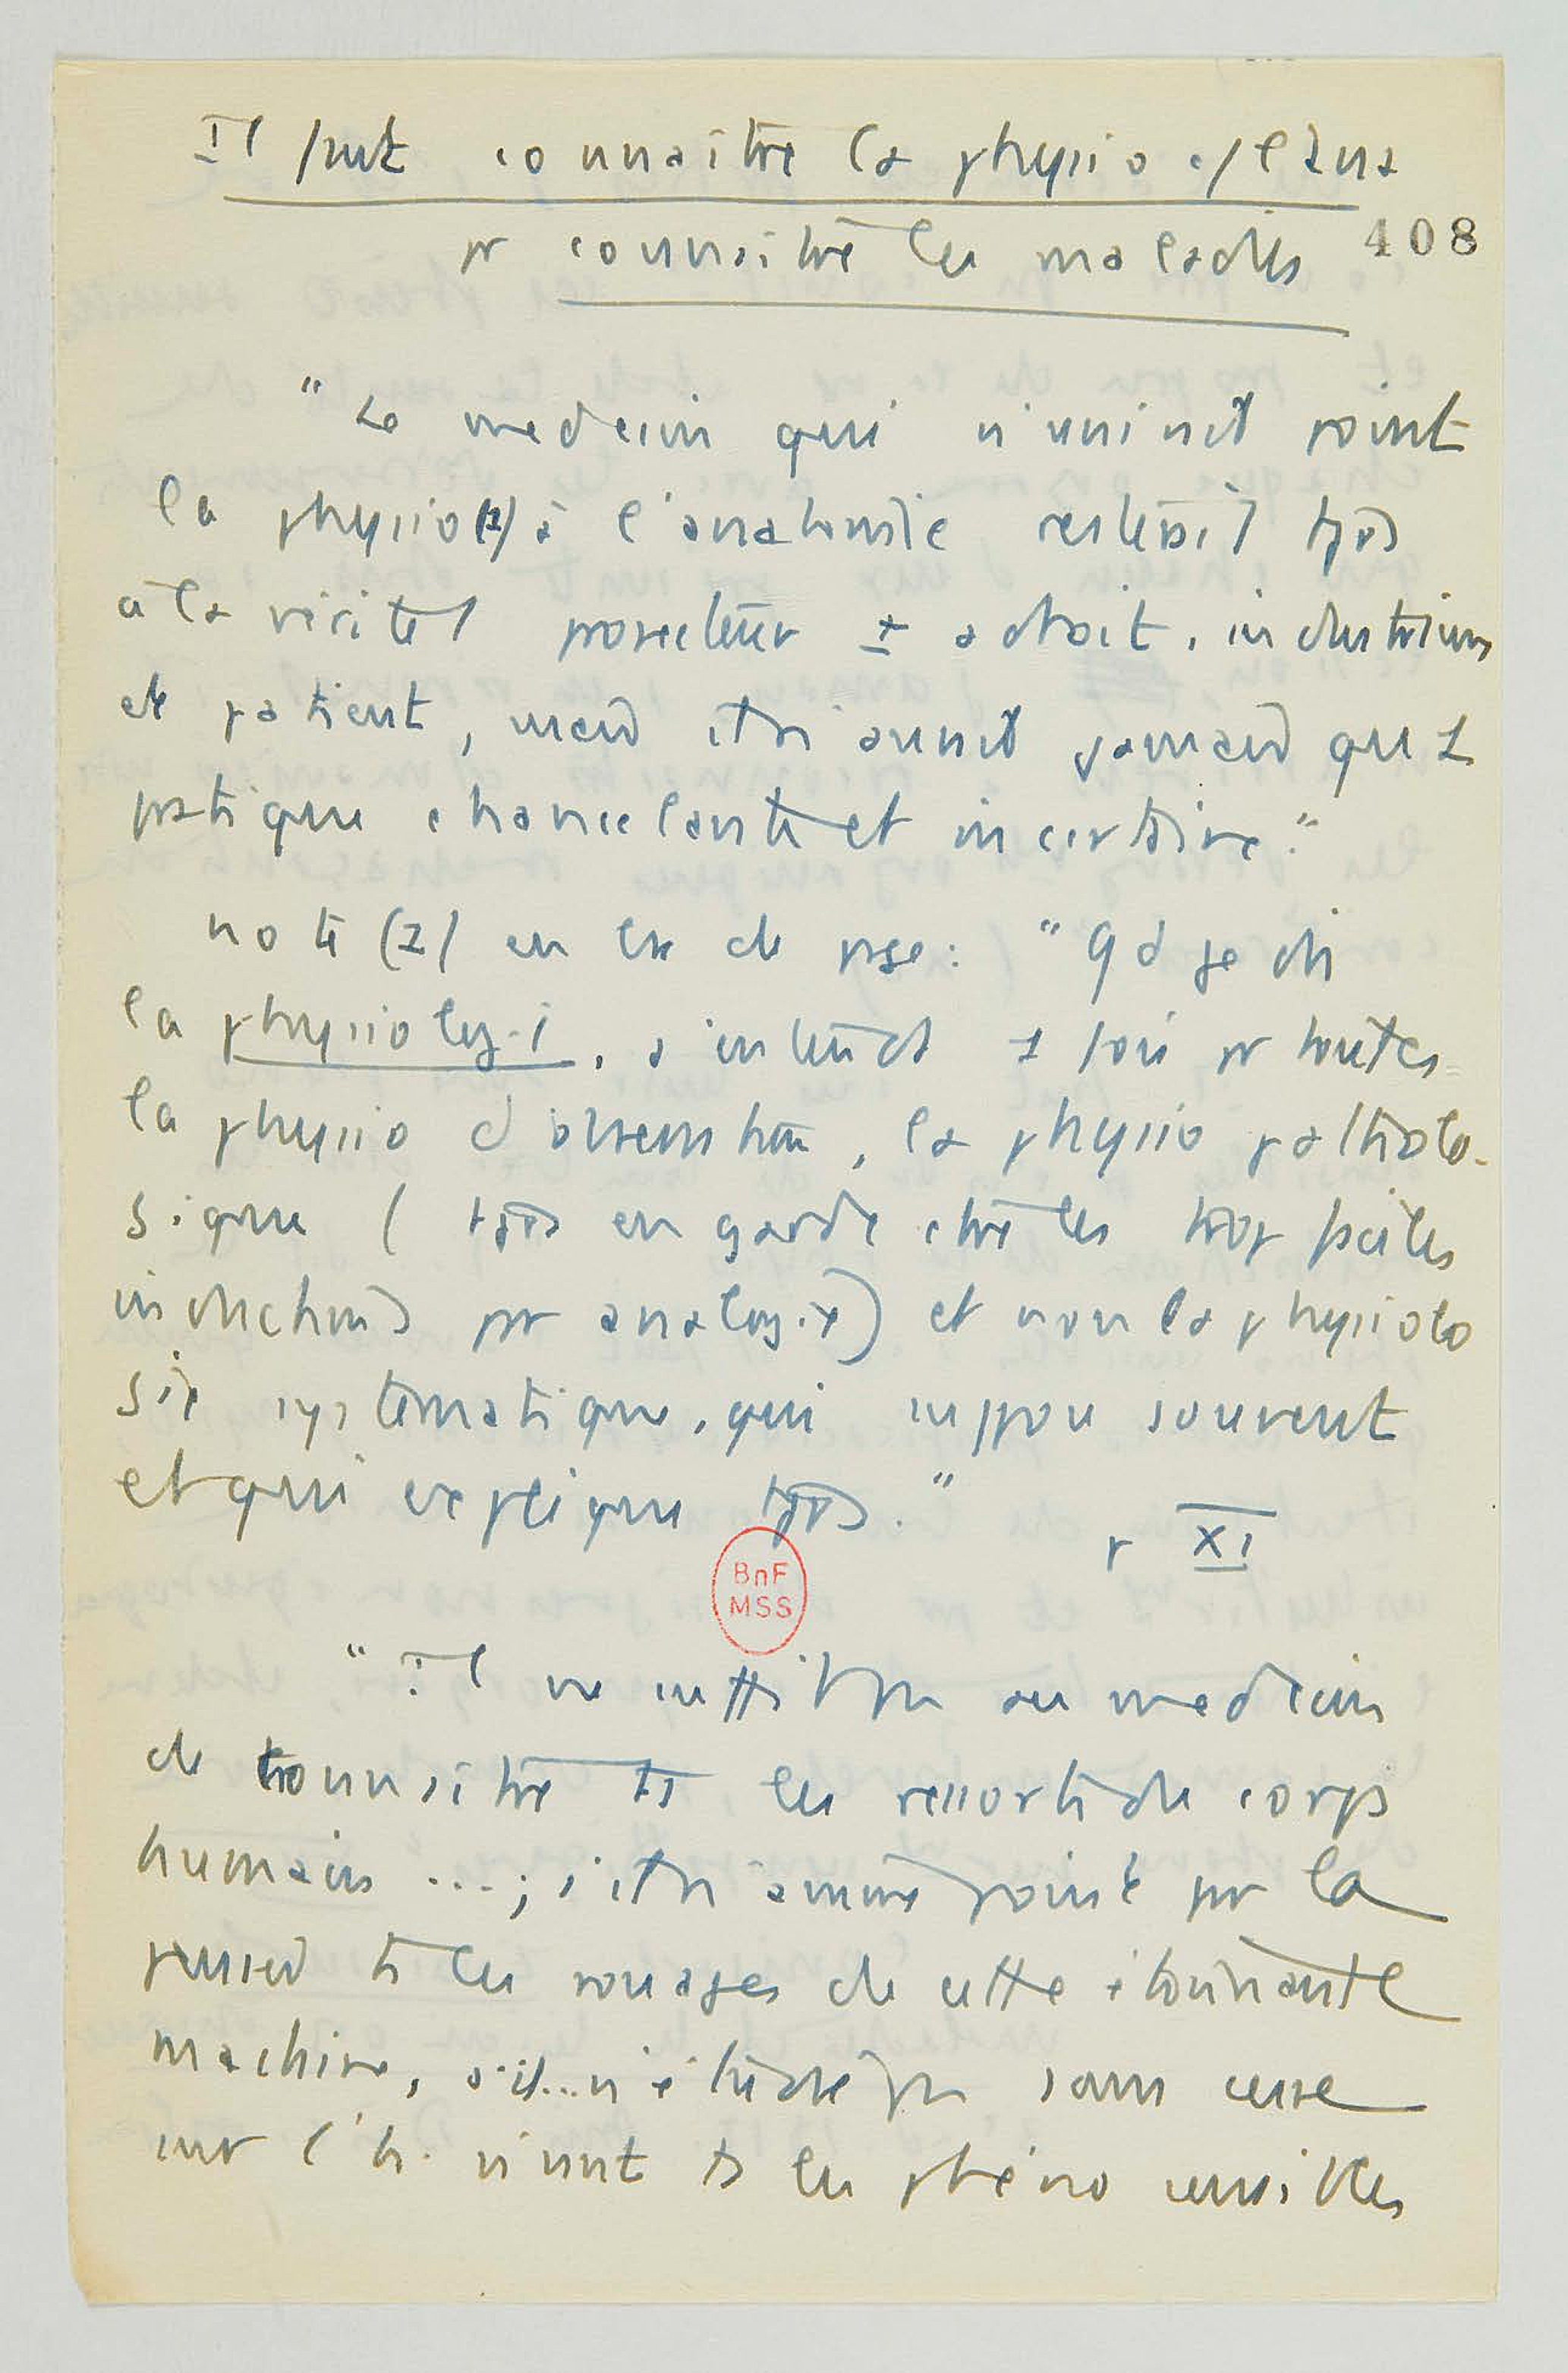 Il faut connaître la physio et l'ana
408
pr connaître les maladies
" Le medecin qui n'unirait point
la physio (1) à l'anatomie resterait tjrs
à la vérité prosecteur + adroit, industrieux
et patient, mais il n'aurait jamais qu' 1
pratique chancelante et incertaine."
note (1) en bas de page : " Qd je dis
la physiologie, j'entends 1 fois pr toutes
la physio d'observation, la physio patholo-
gique ( tjrs en garde ctre les trop faciles
inductions par analogie) et non la physiolo
gie systématique, qui suppose souvent
et qui explique tjrs. "
p XI
BnF
MSS
" Il ne suffit pas au medecin
de connaître ts les ressorts du corps
humain ... ; s'il n'anime point par la
pensée ts les rouages de cette étonnante
machine, s'il... n'étudie pas sans cesse
sur l'h. vivant ts les phéno sensibles